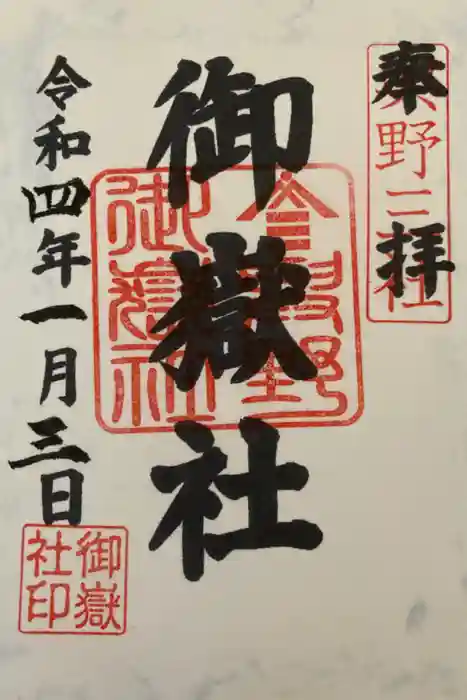 奉拝
野
社
御嶽社
御嶽社
令和四年一月三日
御嶽
社印